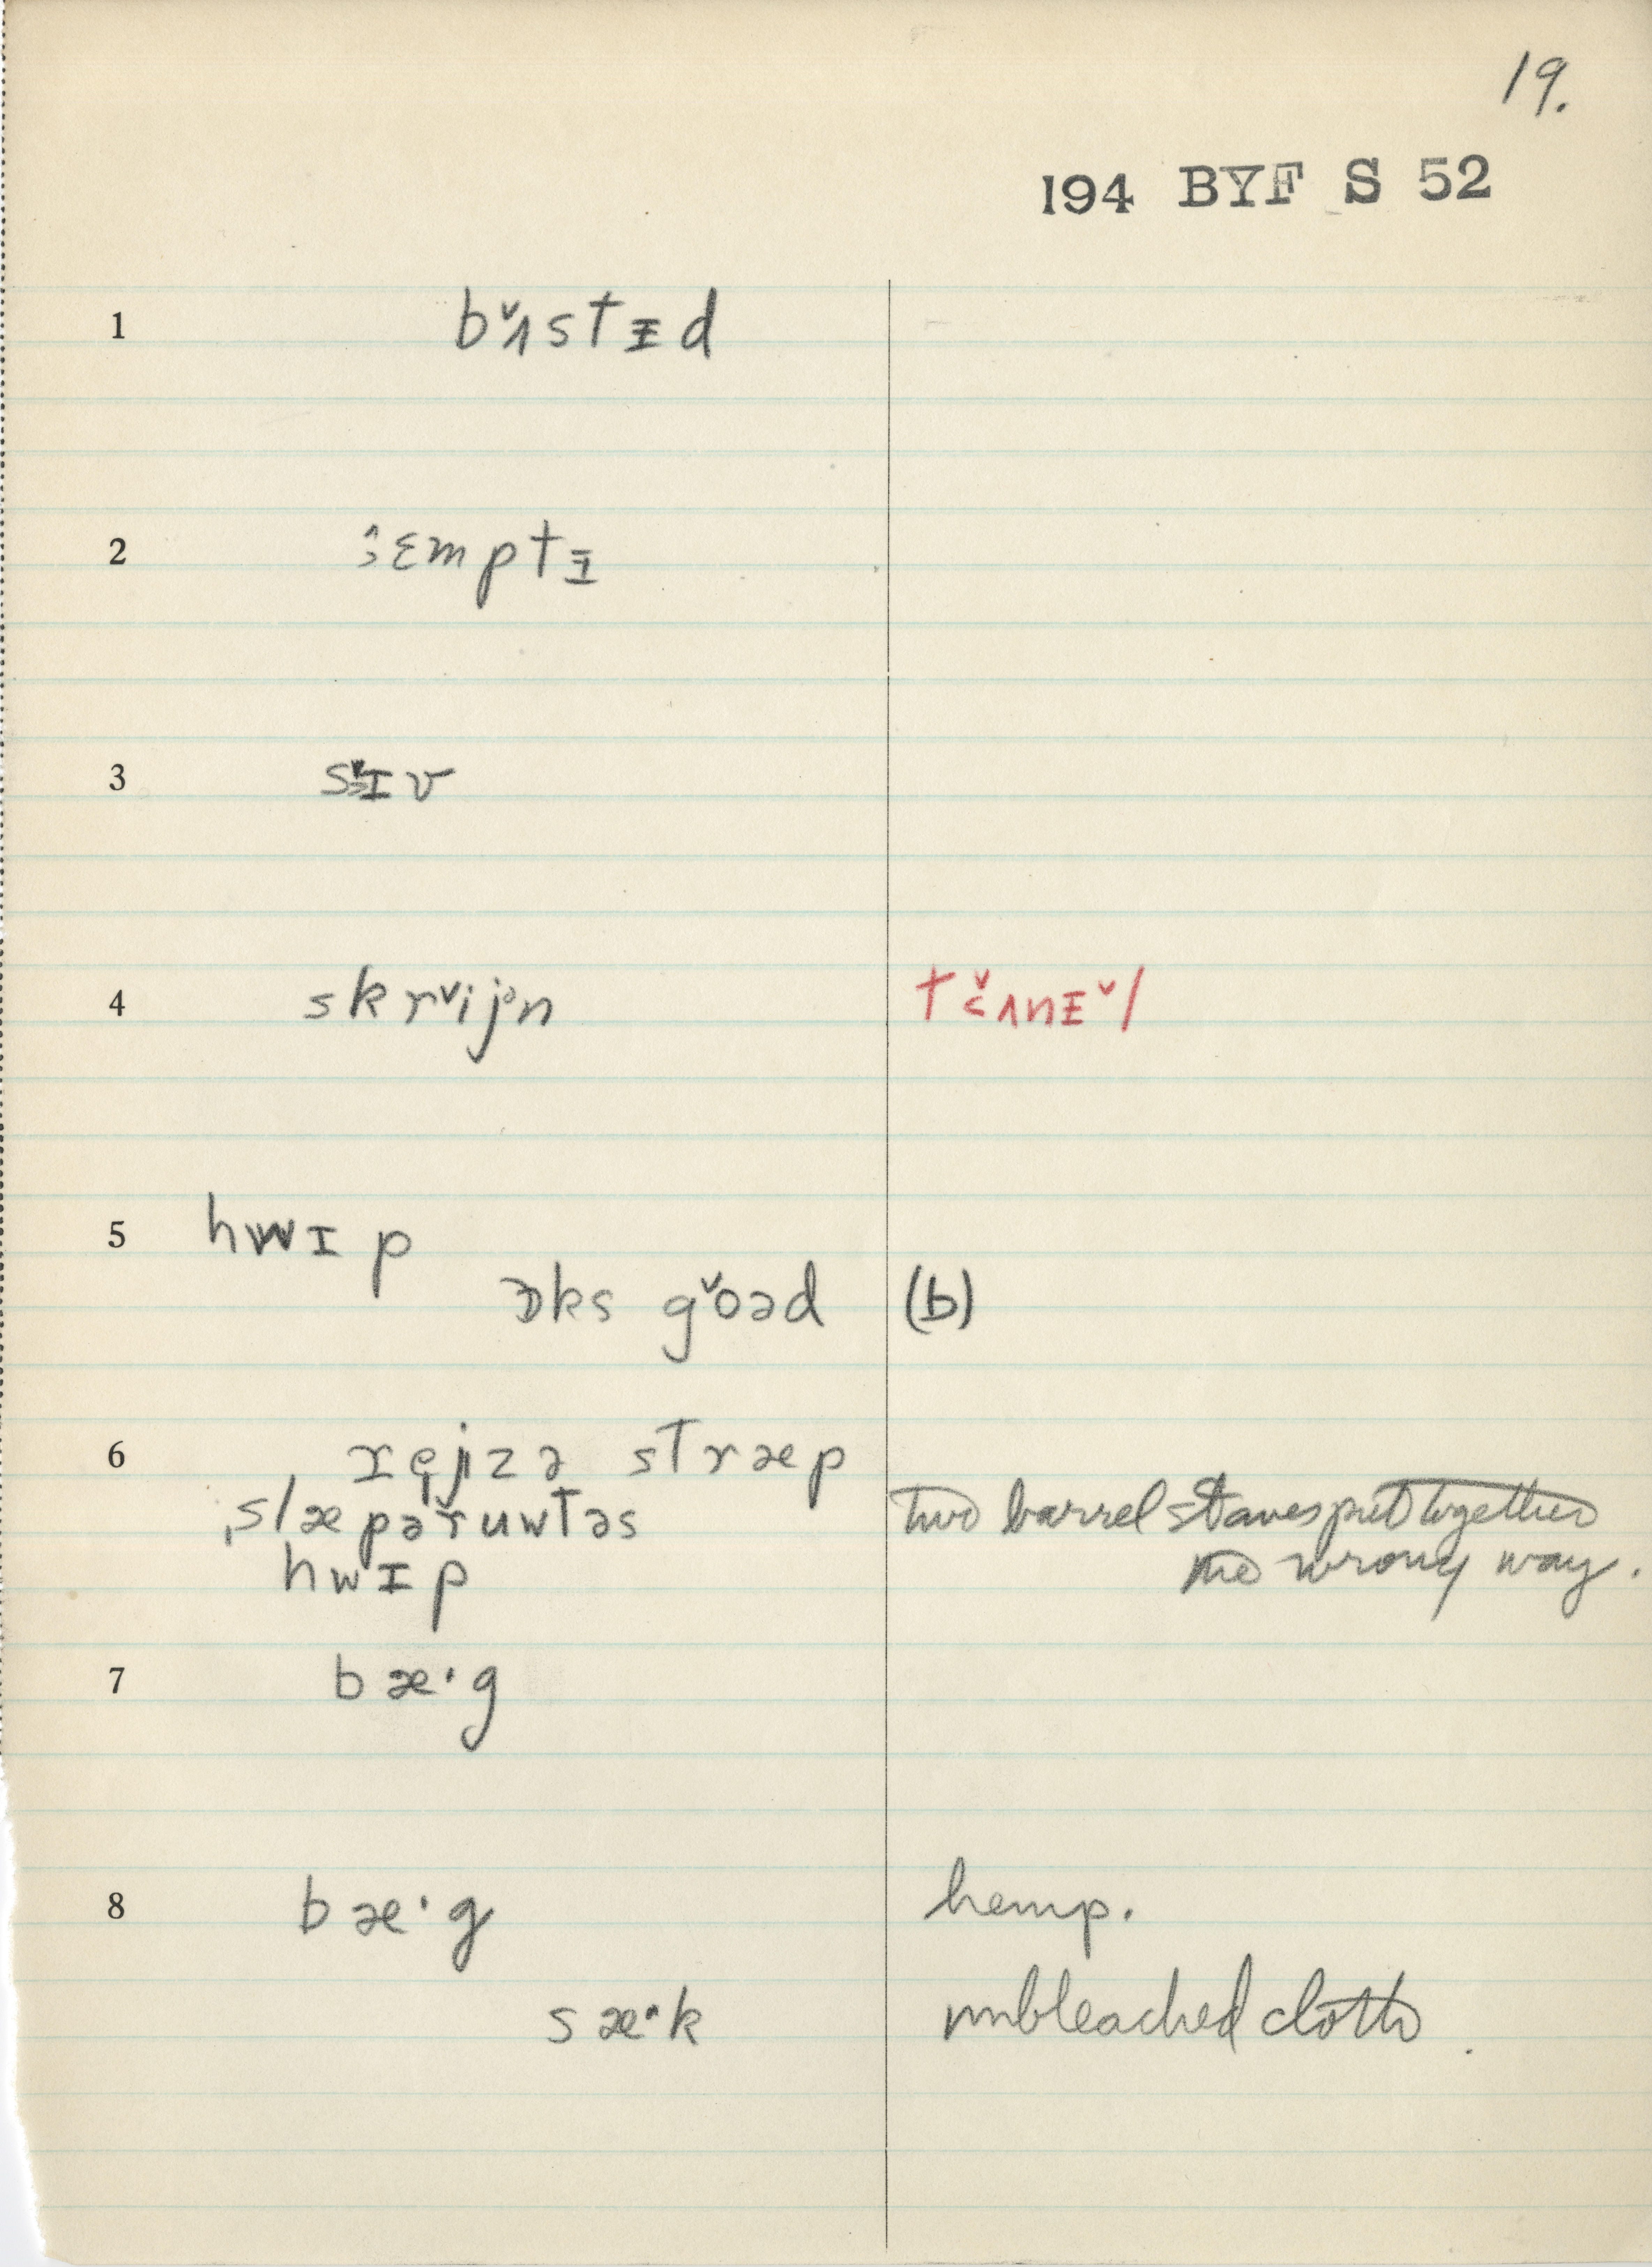 19.
194 BYF S 52
1 bʌ̌stᵻd
2 ɛmptᵻ
3 sɪv
4 skrˇijən tˇɛʌnᵻˇl
5 hwɪp
ɒks gˇoəd (b)
6 ręjzə stræp
ˌslæpəřuwtəs two barrel staves put together
hwɪp the wrong way.
7 bæ·g
8 bæ·g hemp.
sæ^k unbleached cloth.